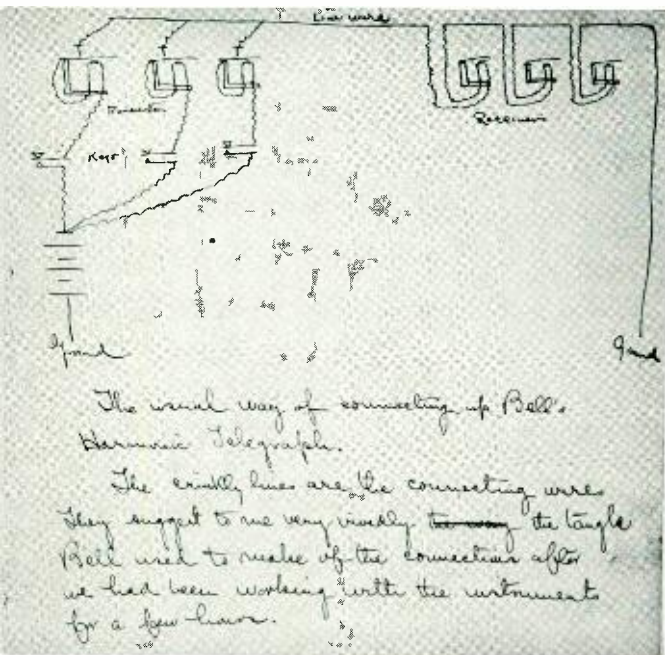 Line wire
Receivers
Keys
Ground
Ground
The usual way of connecting up Bell's
Harmonic Telegraph.
The crinkly lines are the connecting wires
They suggest to me very vividly the way the tangle
Bell used to make of the connections after
we had been working with the instruments
for a few hours.